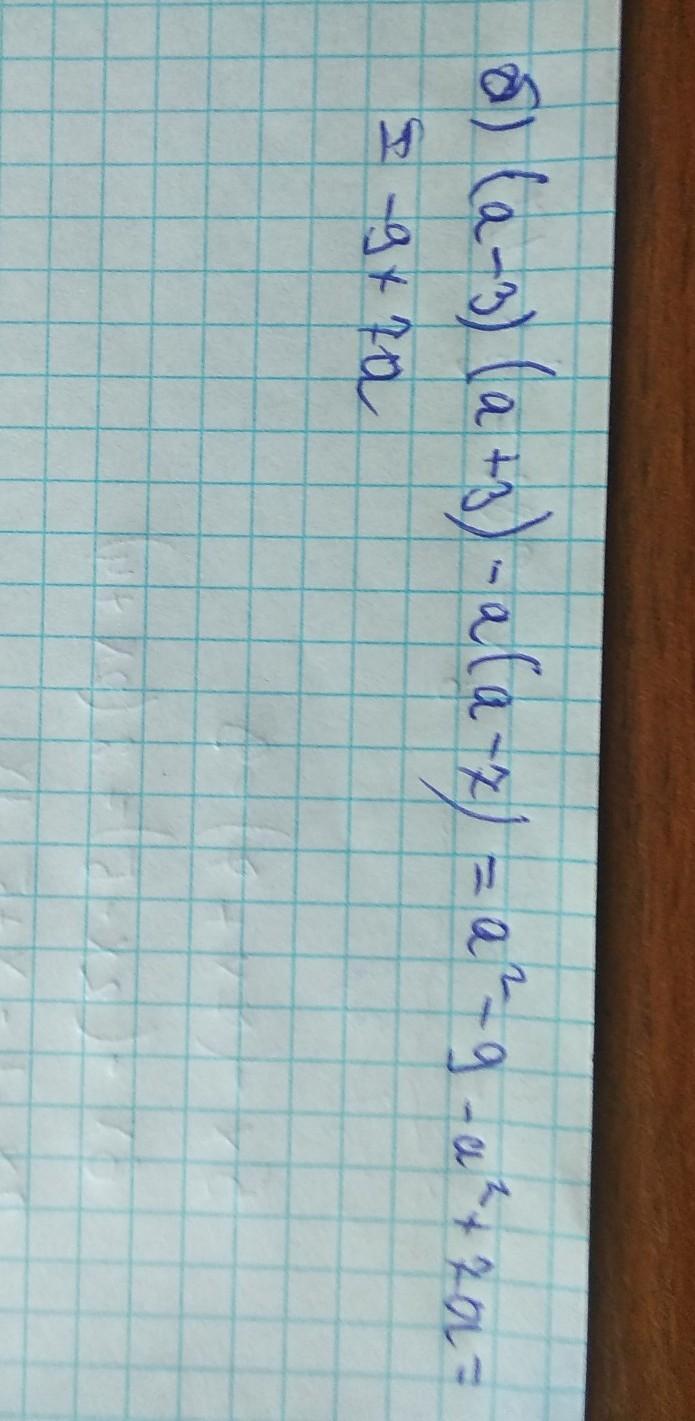 б) (a-3)(a+3)-a(a-7)=a²-9-a²+7a=
= -9+7a